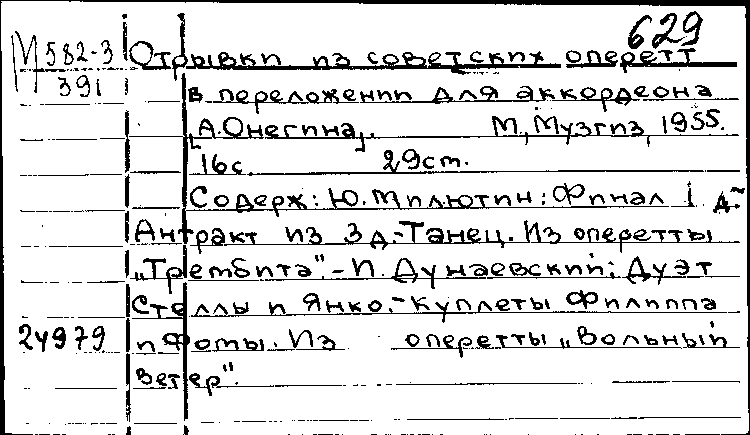 629
М 582-3
391
Отрывки из советских оперетт
в переложении для аккордеона
[А.Онегина]. М, Музгиз, 1955.
16с. 29ст.
Содерж: Ю. Милютин: Финал 1 д.-
Антракт из 3 д.-Танец. Из оперетты
„Трембита".-И. Дунаевский: Дуэт
Стеллы и Янко.-Куплеты Филиппа
24979 и Фомы. Из оперетты „Вольный
ветер".